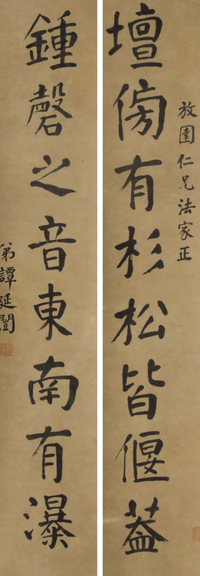 放園仁兄法家正
壇傍有杉松皆偃蓋
鍾磬之音東南有瀑
弟譚延闓